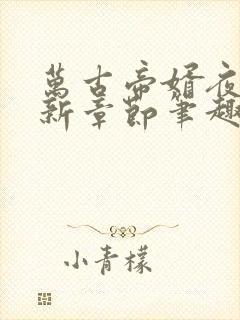 萬古帝婿夜
新章節筆趣
小青檬